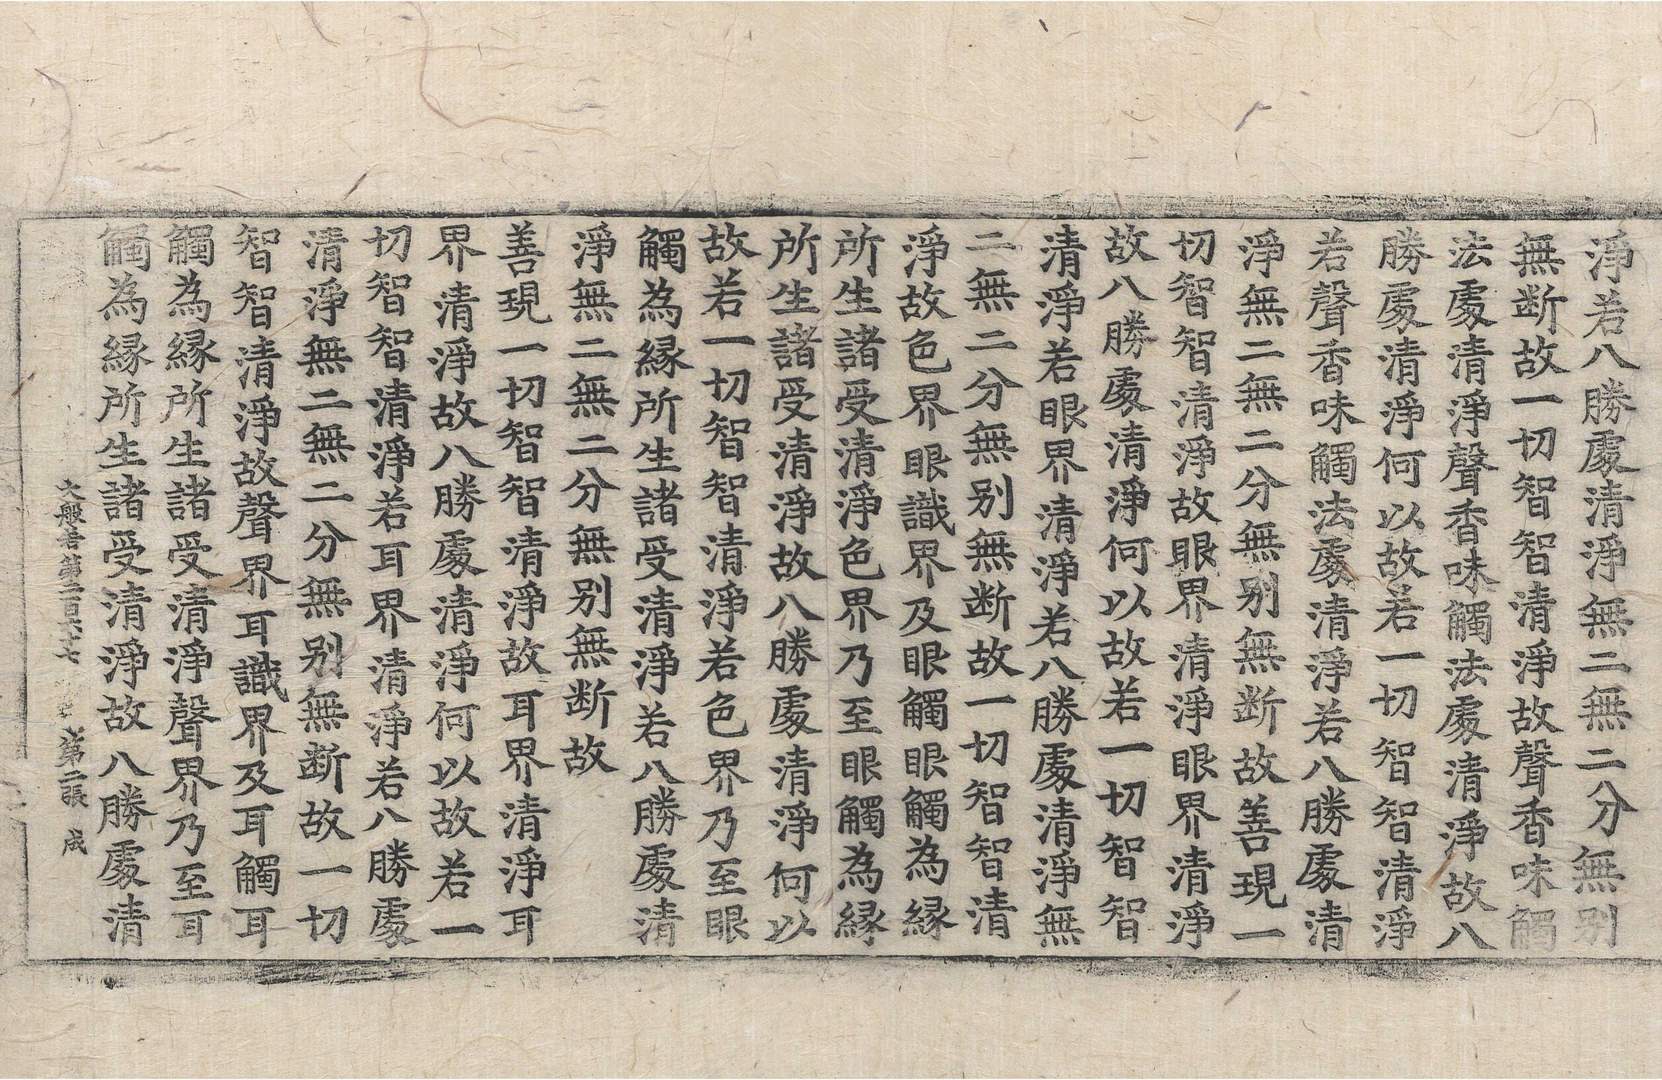 淨若八勝處清淨無二無二分無别
無断故一切智智清淨故聲香味觸
法處清淨聲香味觸法處清淨故八
勝處清淨何以故若一切智智清淨
若聲香味觸法處清淨若八勝處清
淨無二無二分無别無断故善現一
切智智清淨故眼界清淨眼界清淨
故八勝處清淨何以故若一切智智
清淨若眼界清淨若八勝處清淨無
二無二分無别無断故一切智智清
淨故色界眼識界及眼觸眼觸為縁
所生諸受清淨色界乃至眼觸為縁
所生諸受清淨故八勝處清淨何以
故若一切智智清淨若色界乃至眼
觸為縁所生諸受清淨若八勝處清
淨無二無二分無别無断故
善現一切智智清淨故耳界清淨耳
界清淨故八勝處清淨何以故若一
切智智清淨若耳界清淨若八勝處
清淨無二無二分無别無断故一切
智智清淨故聲界耳識界及耳觸耳
觸為縁所生諸受清淨聲界乃至耳
觸為縁所生諸受清淨故八勝處清
大般若第二百六十七 第二張 成